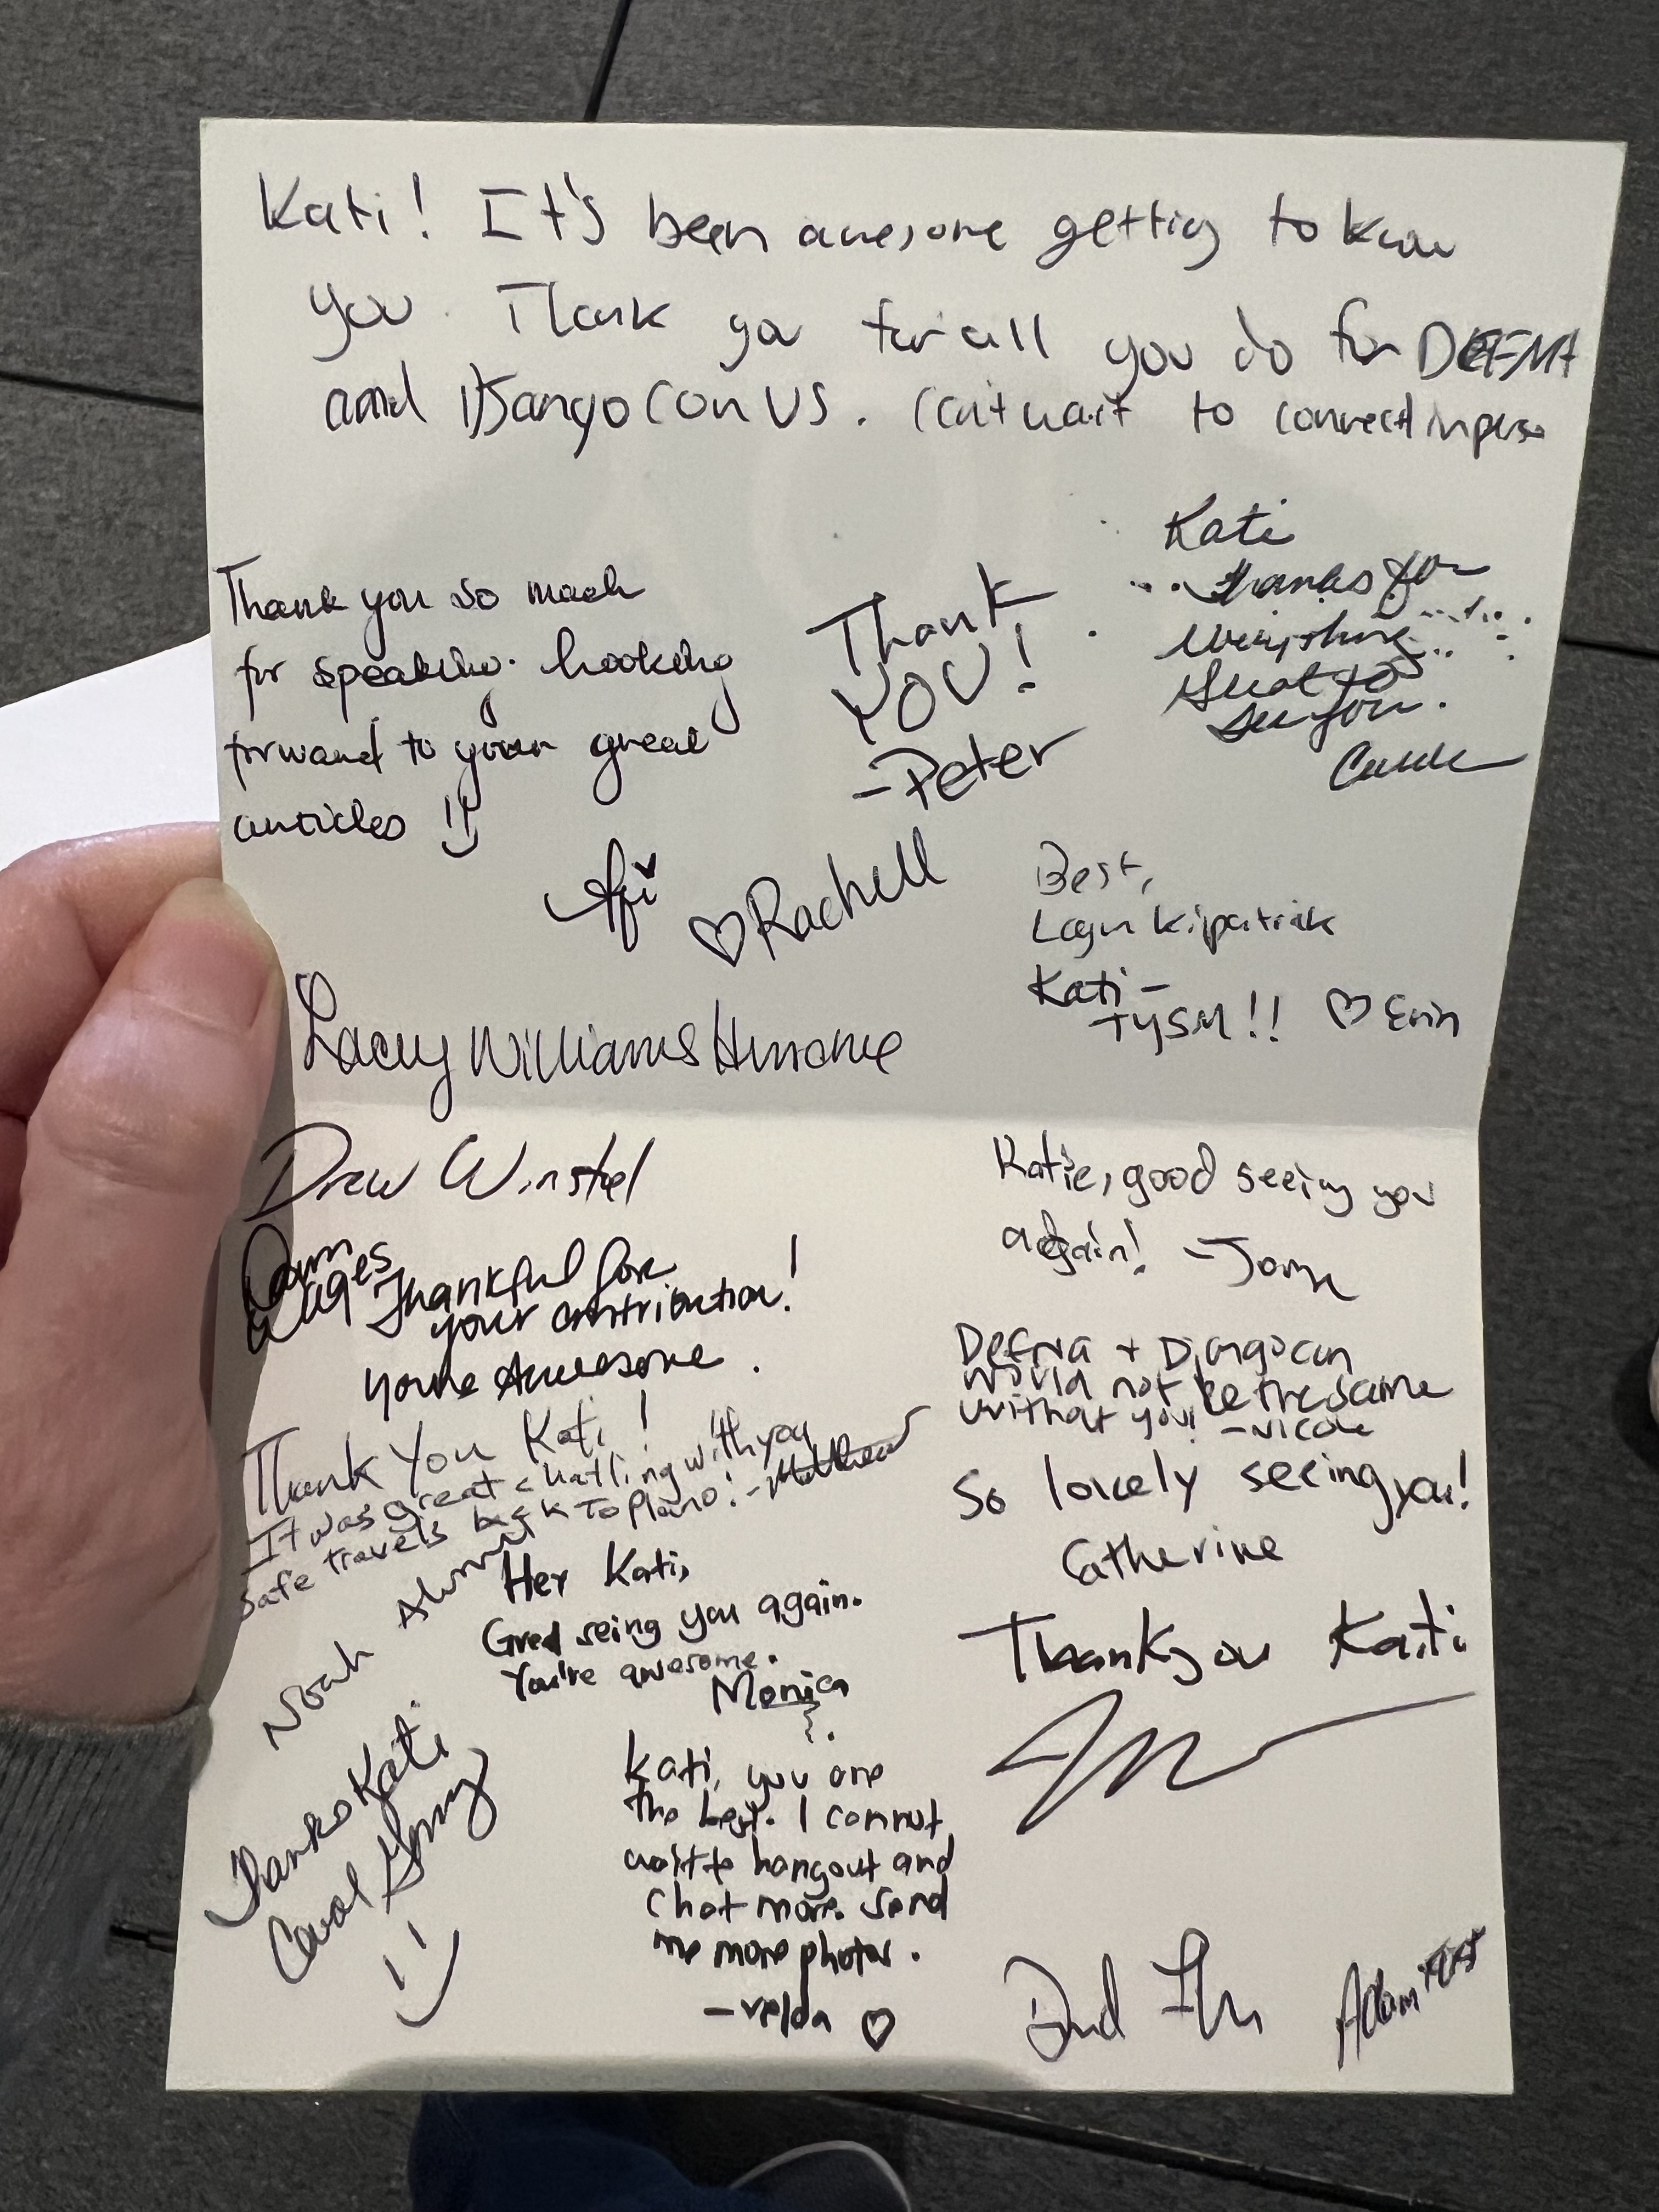 Kati! It's been awesome getting to know
you. Thank you for all you do for DEFNA
and DjangoCon US. Can't wait to connect in person
Thank you so much
for speaking. Looking
forward to your great
articles :)
Afi
Thank
YOU!
-Peter
Kati
thanks for
everything
Great to
see you.
♡Rachell
Best,
Logan Kilpatrick
Kati-
TYSM!! ♡ Erin
Lacey Williams Henschel
Drew Winstel
Dawn
Wages
Thankful for
your contribution!
you're Awesome.
Thank You Kati!
It was great chatling with you
Safe travels back To Plano! -Matthew
Noah
Hey Kati,
Gred seing you again.
You're awesome.
Monica
Thanks Kati
Carol
:)
Kati, you are
the best. I cannot
wait to hangout and
chat more. Send
me more photos.
-velda ♡
Katie, good seeing you
again! -
Defna + Djangocon
would not be the same
without you! -Nicole
So lovely seeing you!
Catherine
Thank you Kati
Adam